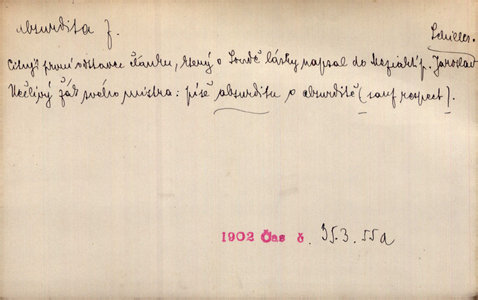 absurdita f.
Schiller.
Cituji první odstavce článku, který o Soudě lásky napsal do p. Jaroslav
Učelivý žák svého mistra: píše absurditu o absurditě (sauf respect).
1902 Čas č. 35.3.55a